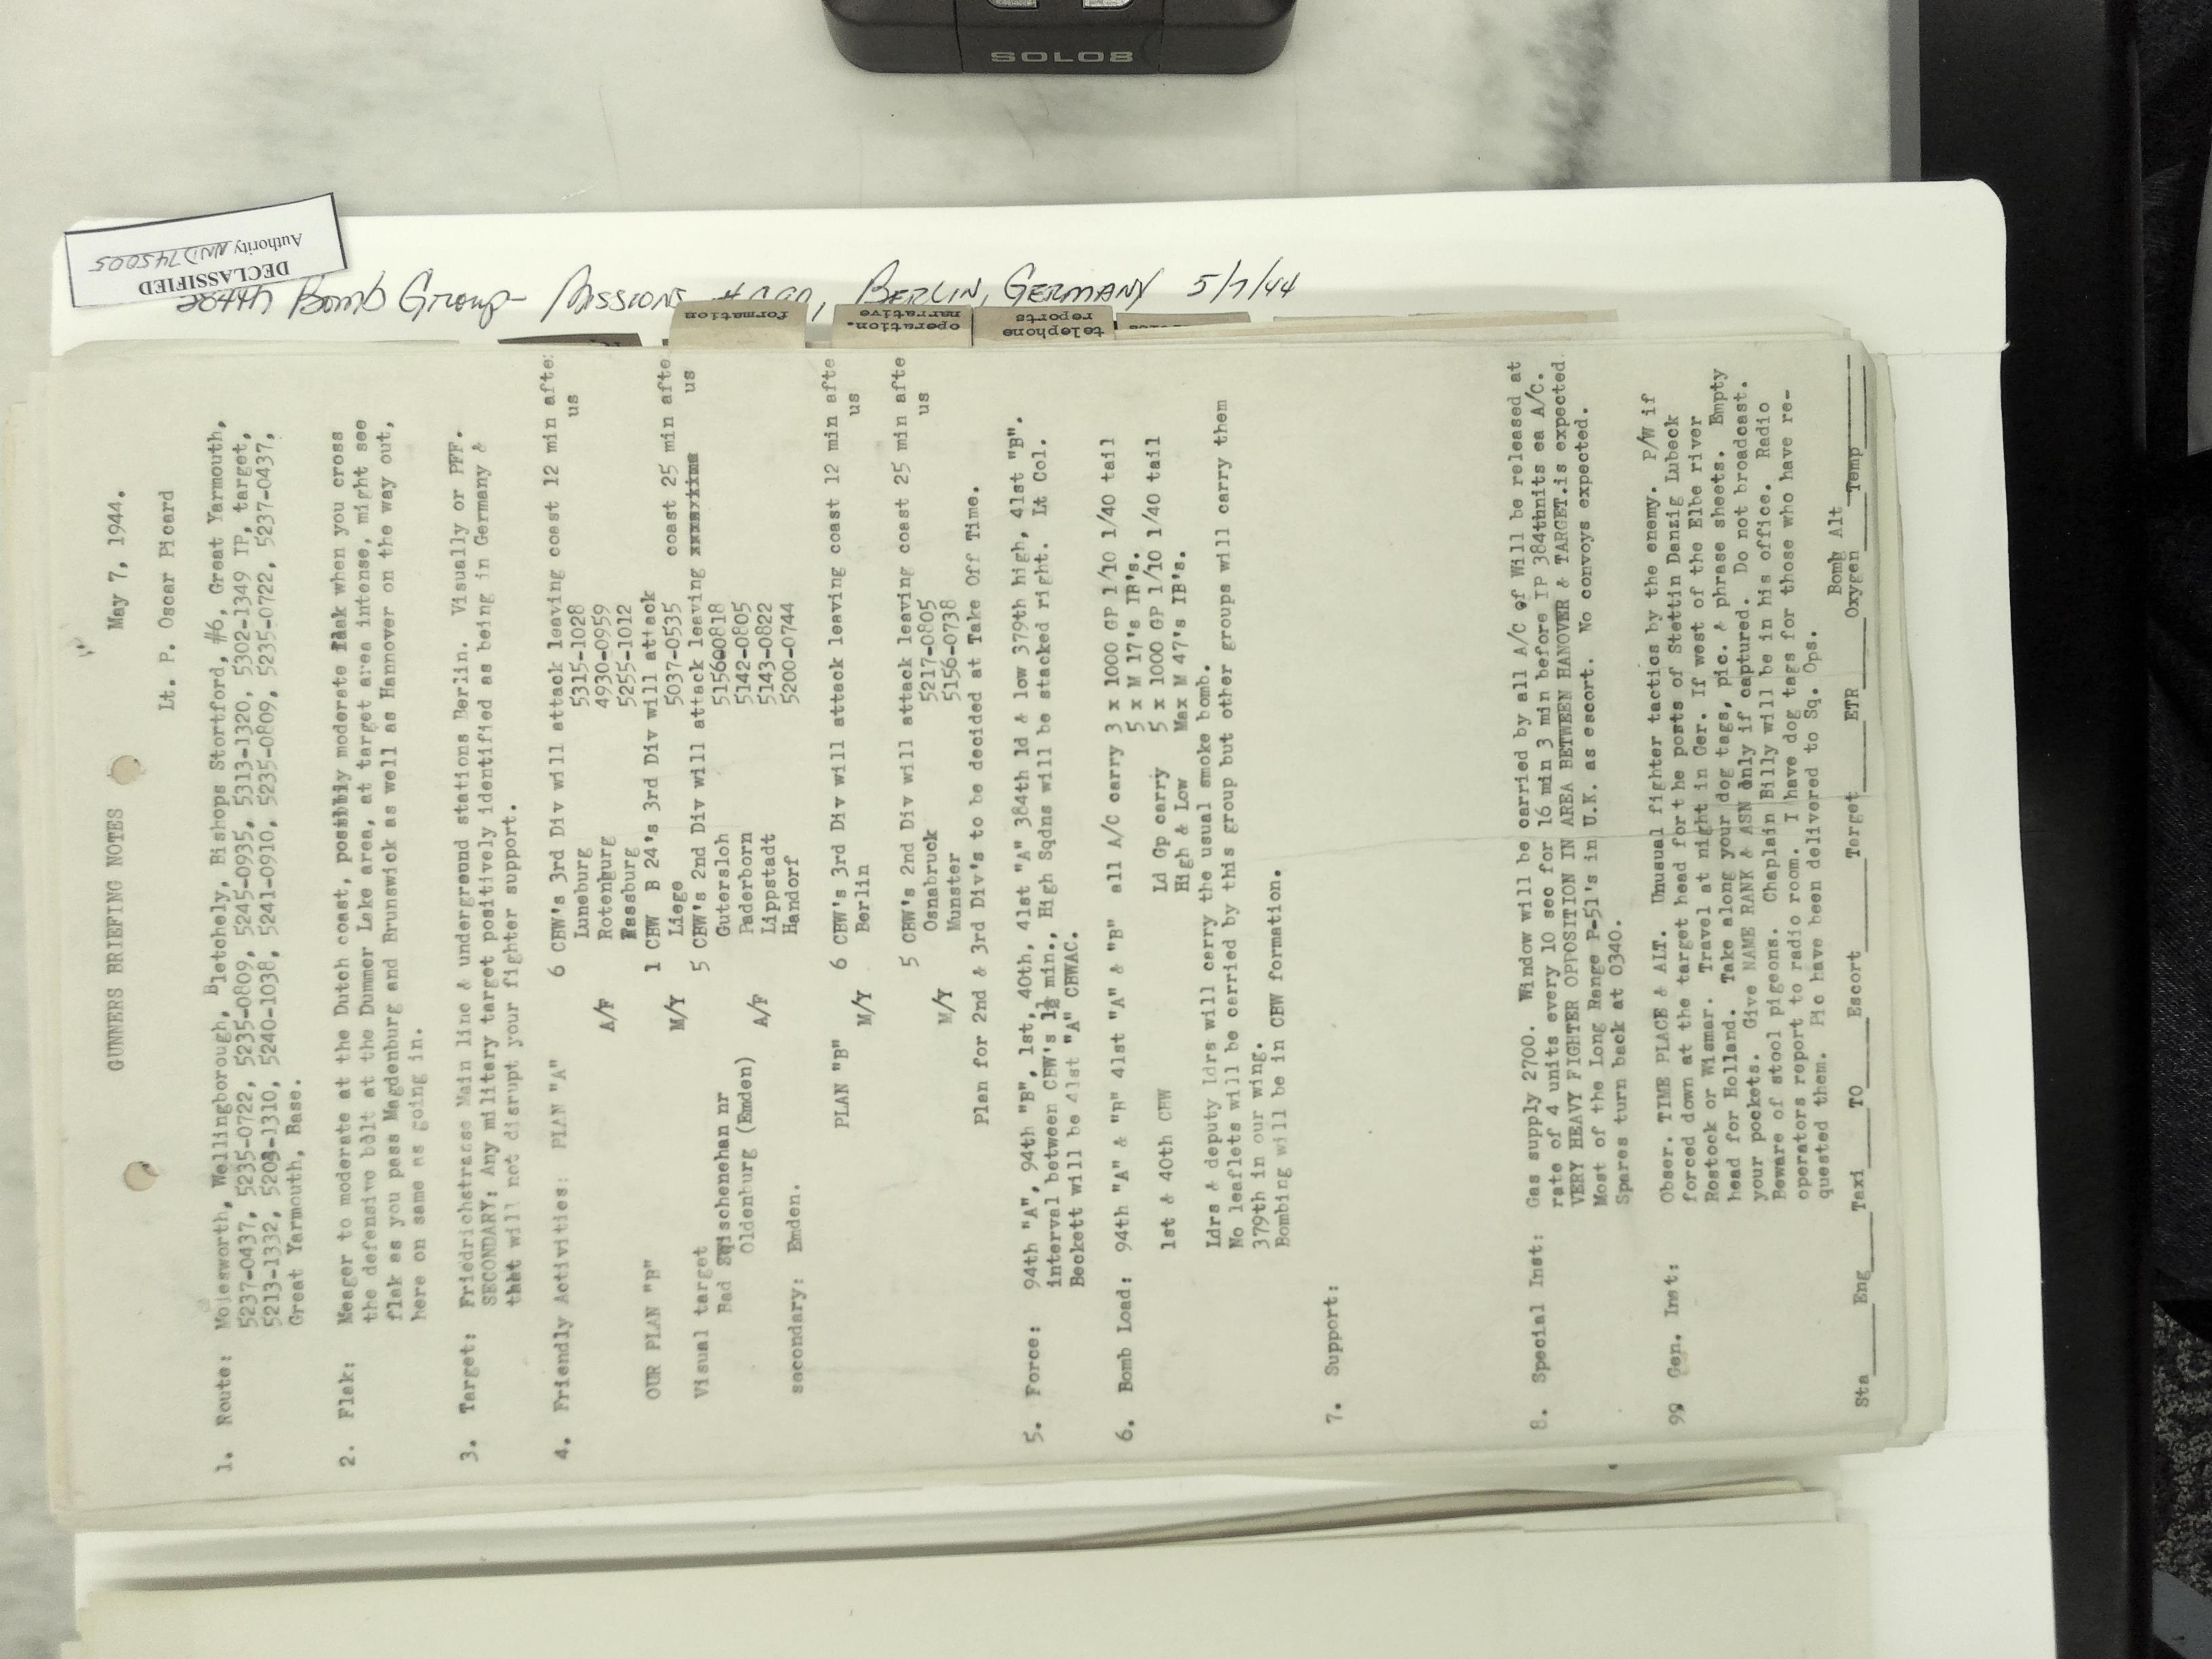 SOLO8
DECLASSIFIED
Authority NND 745005
384th Bomb Group - Missions BERLIN, GERMANY 5/7/44
formation
operation.
narrative
telephone
reports
GUNNERS BRIEFING NOTES May 7, 1944.
Lt. P. Oscar Picard
1. Route: Molesworth, Wellingborough, Bletchely, Bishops Stortford, #6, Great Yarmouth,
5237-0437, 5235-0722, 5235-0809, 5245-0935, 5313-1320, 5302-1349 IP, target,
5213-1332, 5203-1310, 5240-1038, 5241-0910, 5235-0809, 5235-0722, 5237-0437,
Great Yarmouth, Base.
2. Flak: Meager to moderate at the Dutch coast, possibly moderate flak when you cross
the defensive belt at the Dummer Lake area, at target area intense, might see
flak as you pass Magdenburg and Brunswick as well as Hannover on the way out,
here on same as going in.
3. Target: Friedrichstrasse Main line & underground stations Berlin. Visually or PFF.
SECONDARY: Any military target positively identified as being in Germany &
that will not disrupt your fighter support.
4. Friendly Activities: PLAN "A" 6 CBW's 3rd Div will attack leaving coast 12 min after
us
Luneburg 5315-1028
A/F Rotenburg 4930-0959
Rassburg 5255-1012
OUR PLAN "B" 1 CBW B 24's 3rd Div will attack
M/Y Liege 5037-0535 coast 25 min afte
Visual target 5 CBW's 2nd Div will attack leaving us
Bad Zwischenehan nr Gutersloh 5156-0818
Oldenburg (Emden) Paderborn 5142-0805
A/F Lippstadt 5143-0822
secondary: Emden. Handorf 5200-0744
PLAN "B" 6 CBW's 3rd Div will attack leaving coast 12 min afte
M/Y Berlin us
5 CBW's 2nd Div will attack leaving coast 25 min afte
Osnabruck 5217-0805 us
M/Y Munster 5156-0738
Plan for 2nd & 3rd Div's to be decided at Take Off Time.
5. Force: 94th "A", 94th "B", 1st, 40th, 41st "A" 384th ld & low 379th high, 41st "B".
interval between CBW's 1½ min., High Sqdns will be stacked right. Lt Col.
Beckett will be 41st "A" CBWAC.
6. Bomb Load: 94th "A" & "B" 41st "A" & "B" all A/C carry 3 x 1000 GP 1/10 1/40 tail
5 x M 17's IB's.
1st & 40th CBW Ld Gp carry 5 x 1000 GP 1/10 1/40 tail
High & Low Max M 47's IB's.
ldrs & deputy ldrs will carry the usual smoke bomb.
No leaflets will be carried by this group but other groups will carry them
379th in our wing.
Bombing will be in CBW formation.
7. Support:
8. Special Inst: Gas supply 2700. Window will be carried by all A/C of Will be released at
rate of 4 units every 10 sec for 16 min 3 min before IP 384thnits ea A/C.
VERY HEAVY FIGHTER OPPOSITION IN AREA BETWEEN HANOVER & TARGET.is expected.
Most of the Long Range P-51's in U.K. as escort. No convoys expected.
Spares turn back at 0340.
99 Gen. Inst: Obser. TIME PLACE & ALT. Unusual fighter tactics by the enemy. P/W if
forced down at the target head for the posts of Stettin Danzig Lubeck
Rostock or Wismar. Travel at night in Ger. If west of the Elbe river
head for Holland. Take along your dog tags, pic. & phrase sheets. Empty
your pockets. Give NAME RANK & ASN only if captured. Do not broadcast.
Beware of stool pigeons. Chaplain Billy will be in his office. Radio
operators report to radio room. I have dog tags for those who have re-
quested them. Pic have been delivered to Sq. Ops.
Bomb Alt
Sta Eng Taxi TO Escort Target ETR Oxygen Temp